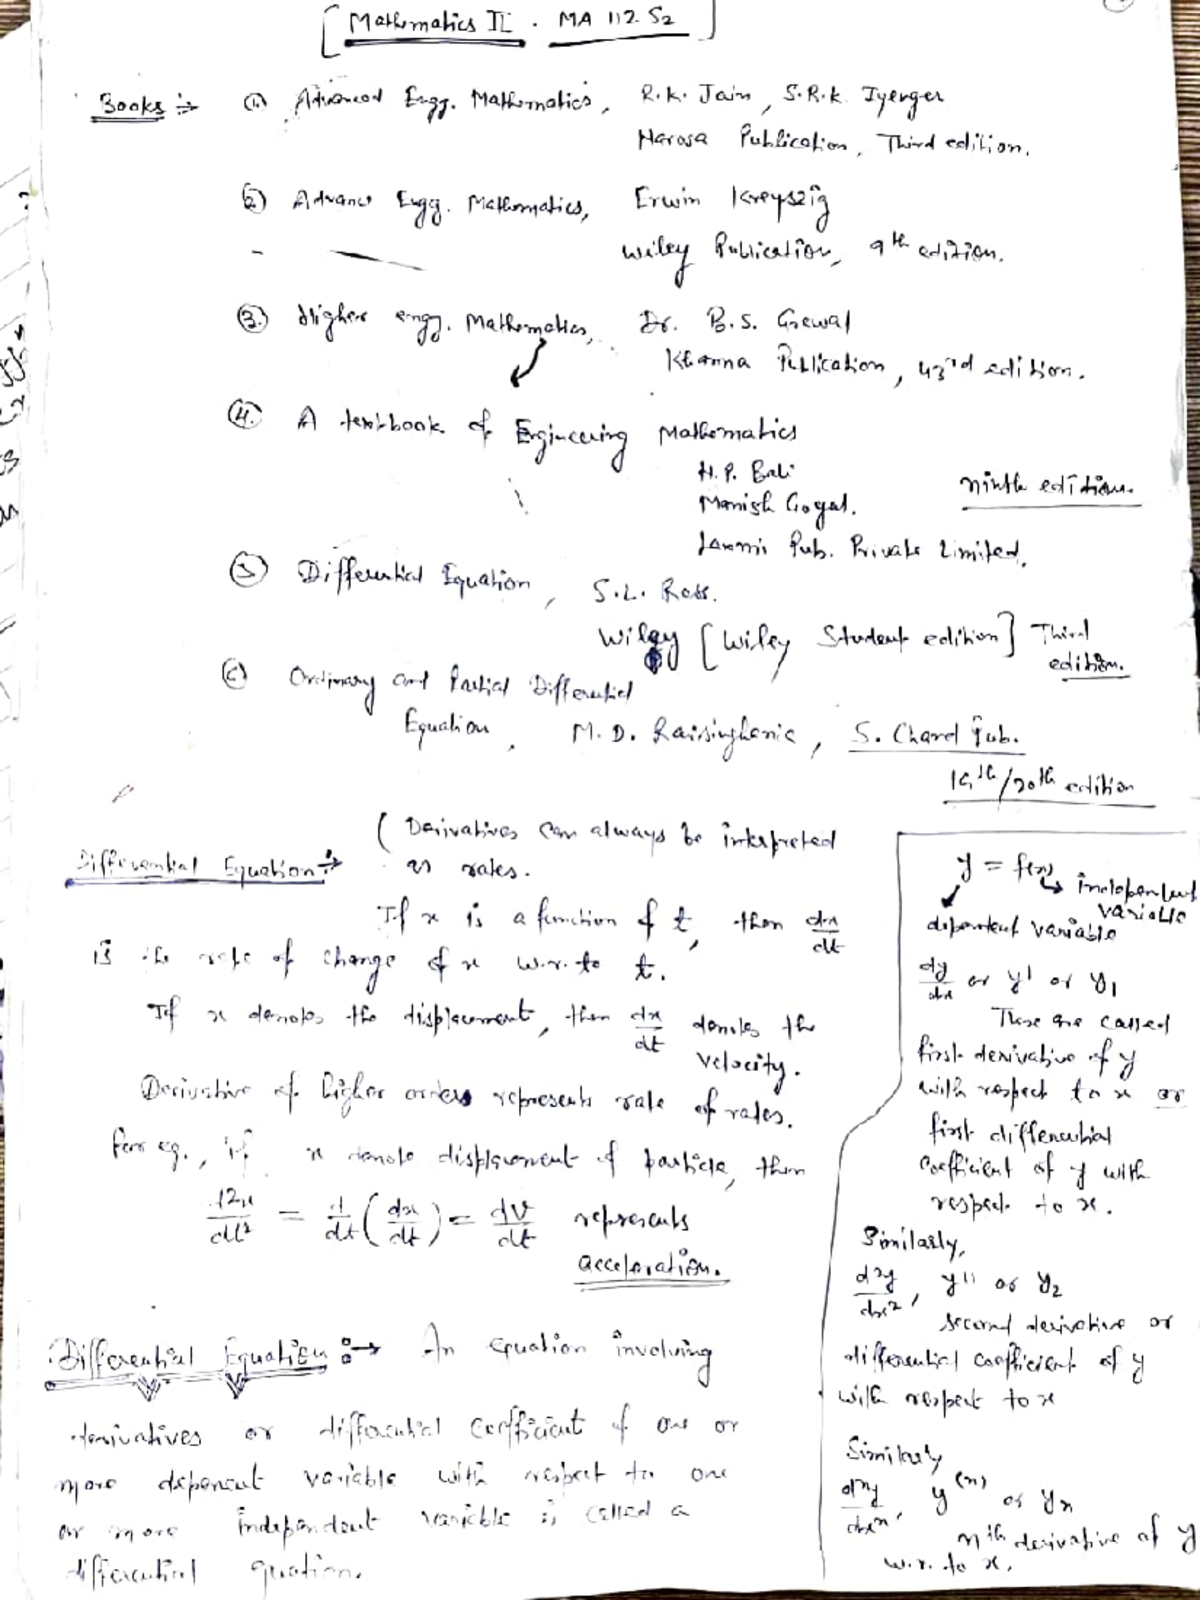 [Mathematics II. MA 112. S2]
Books :→ (1) Advanced Engg. Mathematics, R.K. Jain, S.R.K. Iyenger
Narosa Publication, Third edition.
(2) Advance Engg. Mathematics, Erwin Kreyszig
Wiley Publication, 9th edition.
(3.) Higher engg. Mathematics, Dr. B.S. Grewal
Khanna Publication, 43rd edition.
(4.) A textbook of Engineering Mathematics
N.P. Bali
Manish Goyal.
ninth edition.
Laxmi Pub. Private Limited.
(5) Differential Equation, S.L. Ross.
Wiley [Wiley Student edition] Third
edition.
(6) Ordinary and Partial Differential
Equation, M.D. Raisinghania, S. Chand Pub.
19th/20th edition
Differential Equation :→ (Derivatives can always be interpreted
as rates.
If x is a function of t, then dx/dt
is the rate of change of x w.r. to t.
If x denotes the displacement, then dx/dt denotes the
velocity.
Derivative of higher orders represents rate of rates.
For eg., if x denote displacement of particle, then
d2x/dt² = d/dt (dx/dt) = dv/dt represents
acceleration.
Differential Equation :→ An equation involving
derivatives or differential coefficient of one or
more dependent variable with respect to one
or more independent variable is called a
differential equation.
y = f(x) → independent
variable
dependent variable
dy/dx or y' or y₁
These are called
first derivative of y
with respect to x or
first differential
coefficient of y with
respect to x.
Similarly,
d²y/dx², y'' or y₂
second derivative or
differential coefficient of y
with respect to x
Similarly
dⁿy/dxⁿ, y⁽ⁿ⁾ or yₙ
nth derivative of y
w.r. to x.